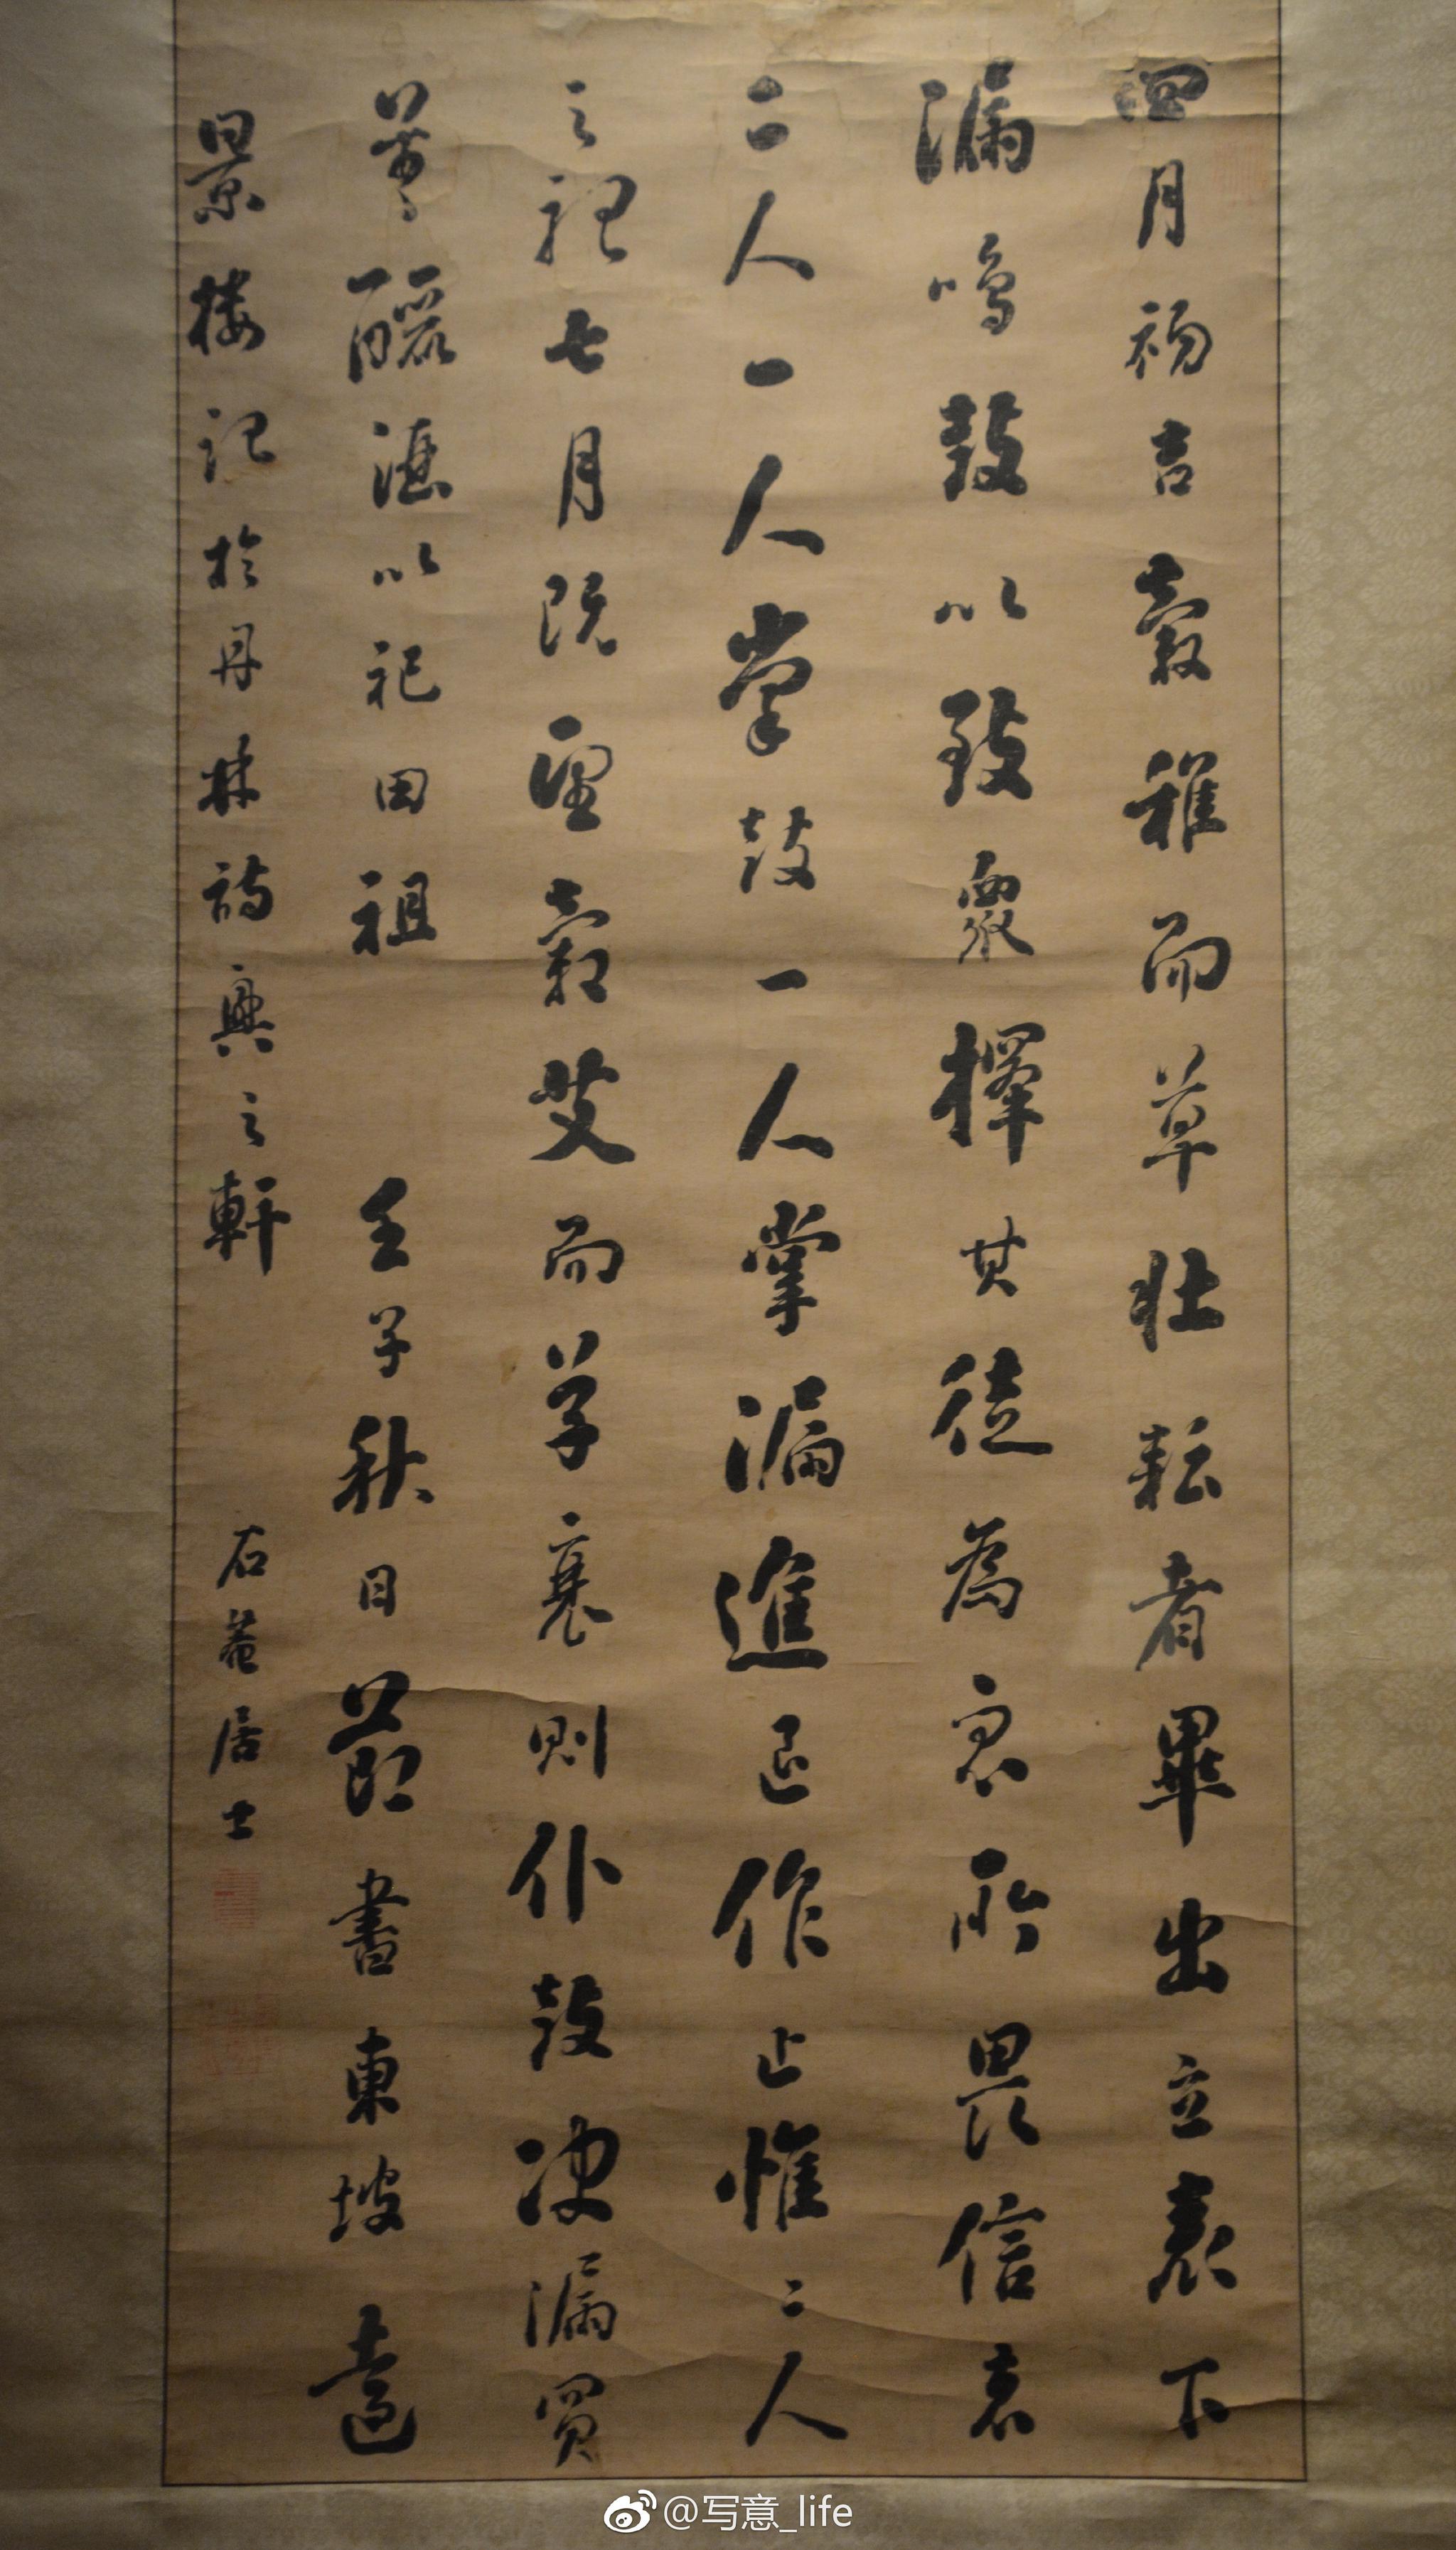 四月初吉穀稚而草壯耘者畢出立表下
漏鳴鼓以致衆擇其徒為衆所畏信者
二人一人掌鼓一人掌漏進退作止惟二人
之聽七月既望穀艾而草衰則仆鼓決漏買
羊釃酒以祀田祖 壬子秋日節書東坡遠
景樓記於丹林詩興之軒 石菴居士
@写意_life